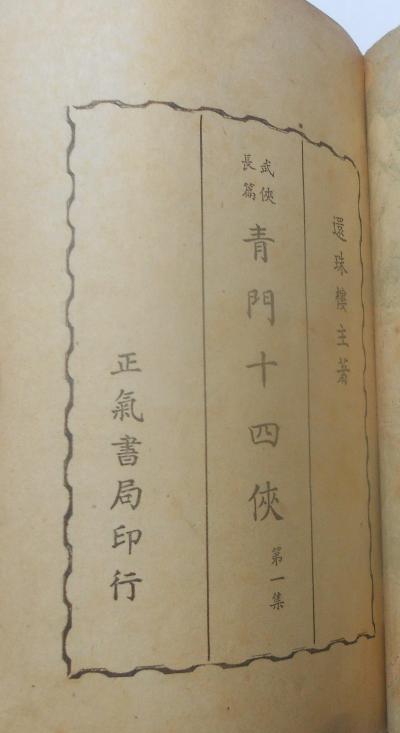 還珠樓主著
武俠
長篇
青門十四俠
第一集
正氣書局印行